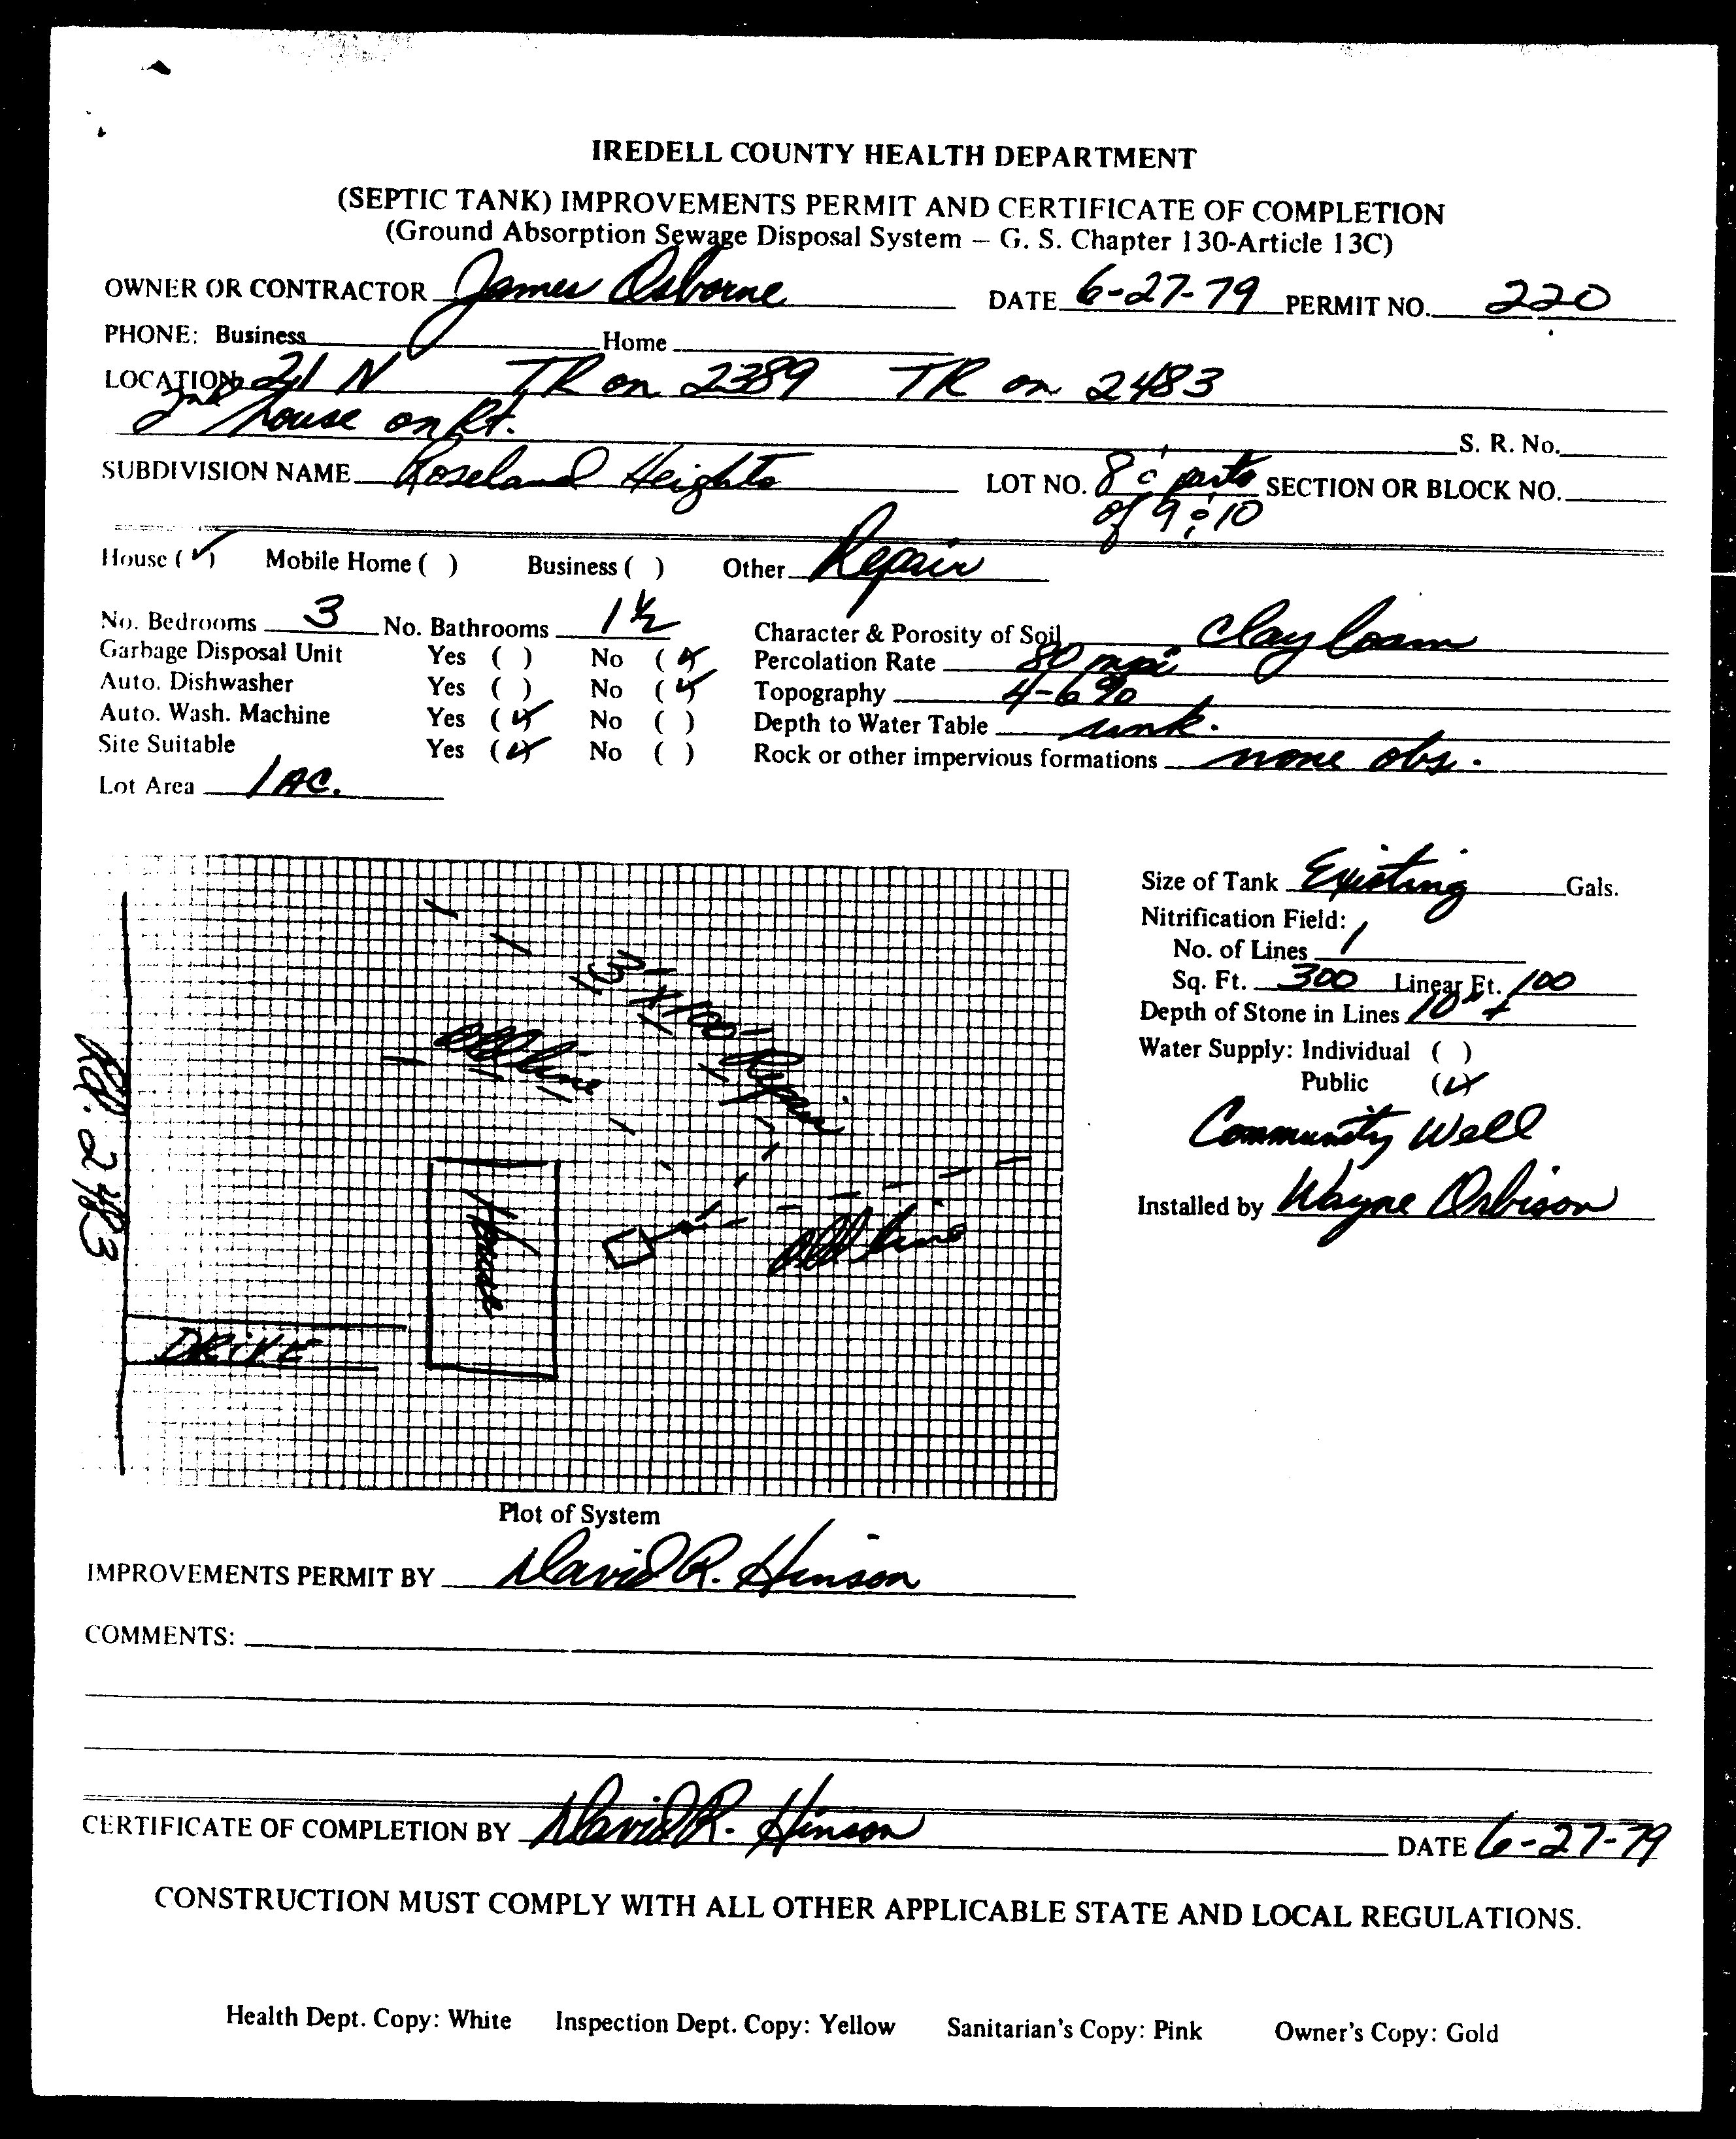 IREDELL COUNTY HEALTH DEPARTMENT
(SEPTIC TANK) IMPROVEMENTS PERMIT AND CERTIFICATE OF COMPLETION
(Ground Absorption Sewage Disposal System – G. S. Chapter 130-Article 13C)
OWNER OR CONTRACTOR James Osborne DATE 6-27-79 PERMIT NO. 220
PHONE: Business Home
LOCATION 21 N TR on 2389 TR on 2483
2nd house on Rt. S. R. No.
SUBDIVISION NAME Roseland Heights LOT NO. 8 & parts SECTION OR BLOCK NO.
of 9 & 10
House (✓) Mobile Home ( ) Business ( ) Other Repair
No. Bedrooms 3 No. Bathrooms 1 ½ Character & Porosity of Soil Clay loam
Garbage Disposal Unit Yes ( ) No (✓) Percolation Rate 80 mpi
Auto. Dishwasher Yes ( ) No (✓) Topography 4-6%
Auto. Wash. Machine Yes (✓) No ( ) Depth to Water Table unk.
Site Suitable Yes (✓) No ( ) Rock or other impervious formations none obs.
Lot Area 1 AC.
Size of Tank Existing Gals.
Nitrification Field:
No. of Lines 1
Sq. Ft. 300 Linear Ft. 100
Depth of Stone in Lines 10" +
Water Supply: Individual ( )
Public (✓)
Community Well
Installed by Wayne Orbison
3' x 100' Repair
Old line
Rd. 2483
House
Old line
DRIVE
Plot of System
IMPROVEMENTS PERMIT BY David R. Hinson
COMMENTS:
CERTIFICATE OF COMPLETION BY David R. Hinson DATE 6-27-79
CONSTRUCTION MUST COMPLY WITH ALL OTHER APPLICABLE STATE AND LOCAL REGULATIONS.
Health Dept. Copy: White Inspection Dept. Copy: Yellow Sanitarian's Copy: Pink Owner's Copy: Gold